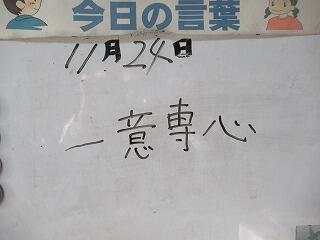 今日の言葉
11月24日
一意専心